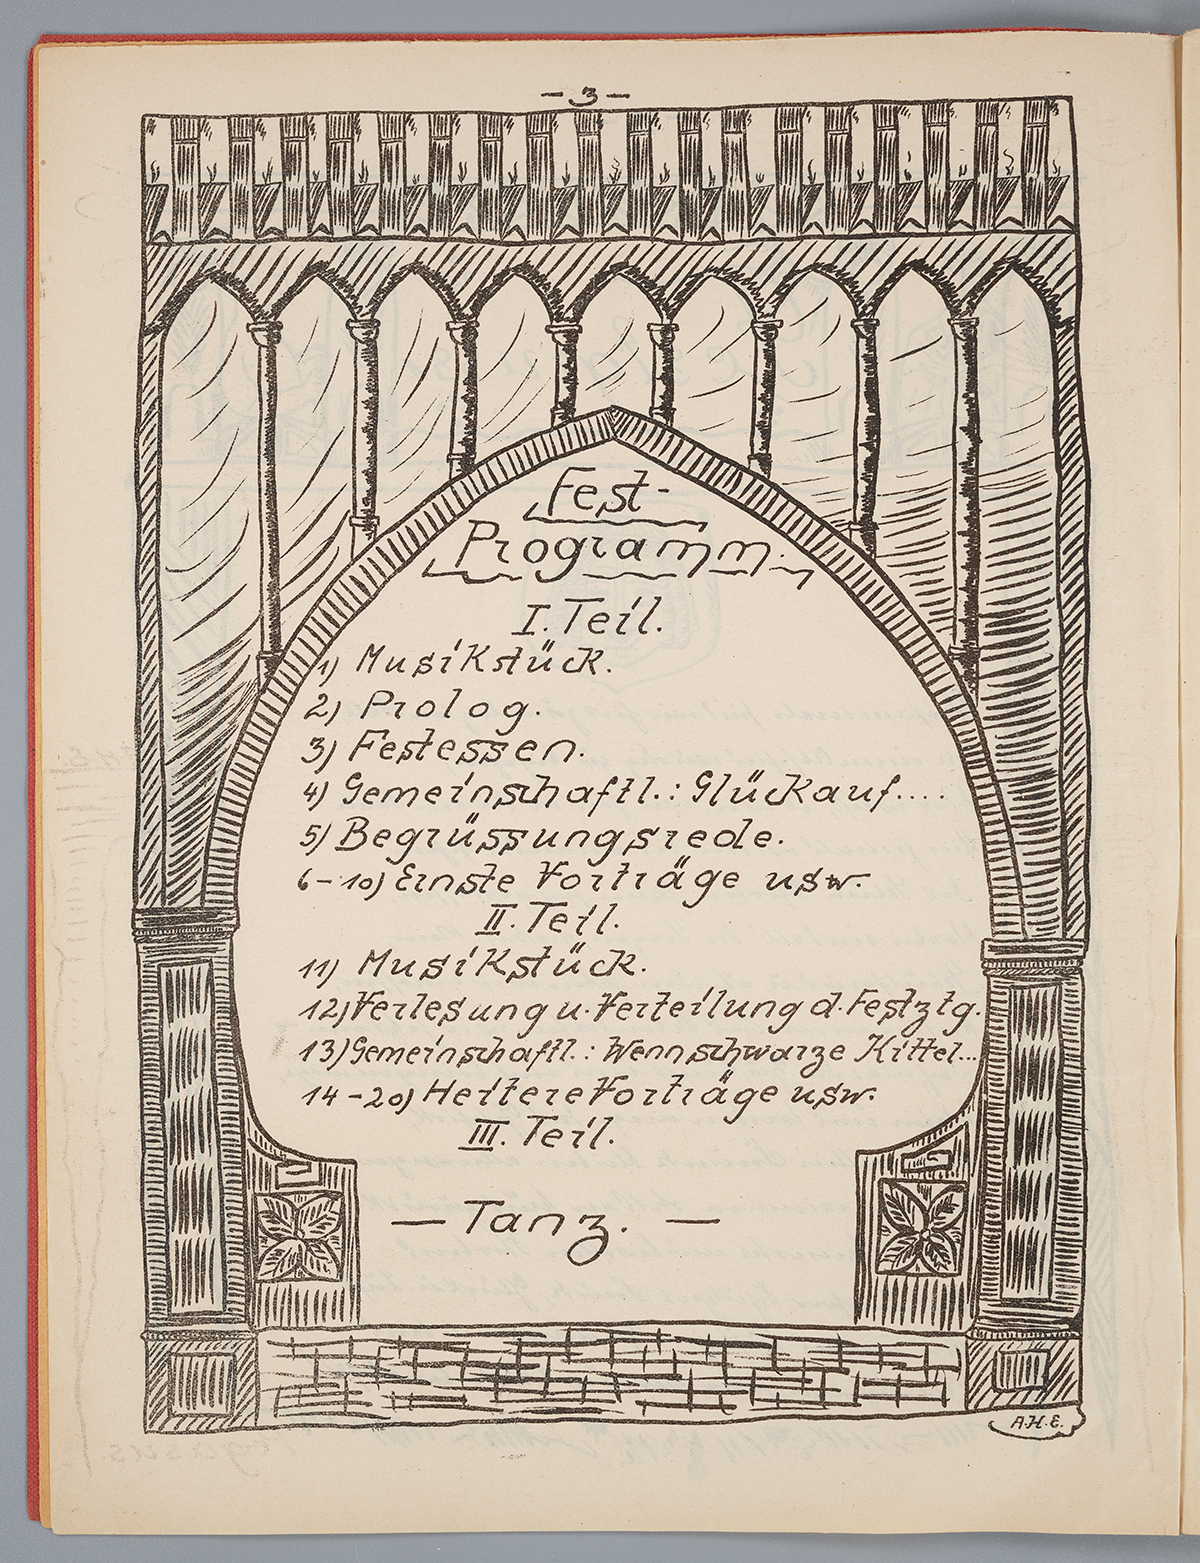 - 3 -
Fest-
Programm.
I. Teil.
1) Musikstück.
2) Prolog.
3) Festessen.
4) Gemeinschaftl.: Glückauf....
5) Begrüssungsrede.
6-10) Ernste Vorträge usw.
II. Teil.
11) Musikstück.
12) Verlesung u. Verteilung d. Festztg.
13) Gemeinschaftl.: Wenn schwarze Kittel...
14-20) Heitere Vorträge usw.
III. Teil.
— Tanz. —
A.H.E.